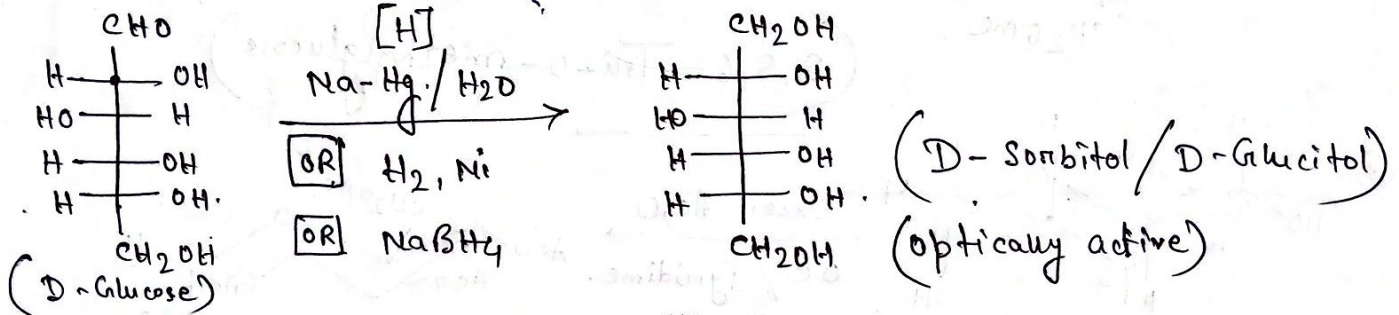 CHO
H OH
HO H
H OH
H OH.
CH2OH
(D-Glucose)
[H]
Na-Hg/H2O
OR H2, Ni
OR NaBH4
CH2OH
H OH
HO H
H OH
H OH.
CH2OH
(D-Sorbitol/D-Glucitol)
(optically active)